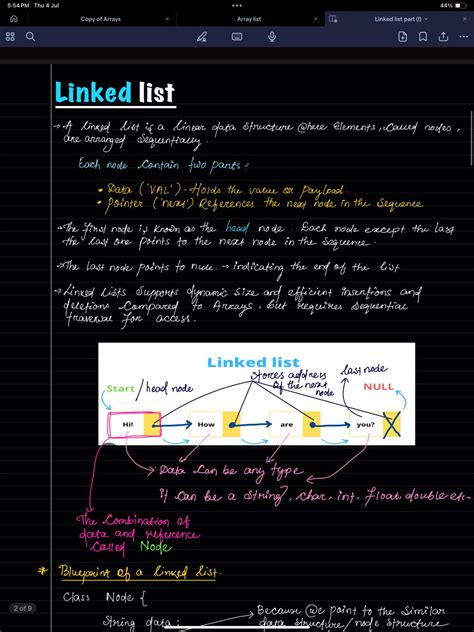 5:54 PM Thu 4 Jul
44%
Copy of Arrays
Array list
Linked list part (I)
Linked list
→ A linked list is a linear data structure where elements, called nodes,
are arranged sequentially.
Each node contain two parts:
• Data ('VAL') - Holds the value or payload
• Pointer ('next') References the next node in the sequence
→ The first node is known as the head node. Each node except the last
the last one points to the next node in the sequence.
→ The last node points to null → indicating the end of the list
→ Linked Lists supports dynamic size and efficient insertions and
deletions compared to Arrays, but requires sequential
traversal for access.
Linked list
Start / head node
stores address
of the next
node
last node
NULL
Hi!
How
are
you?
Data can be any type
it can be a string, char, int, float, double etc-
The combination of
data and reference
called Node
* Blueprint of a linked list.
Class Node {
String data;
→ Because we point to the similar
data structure/node structure
2 of 9